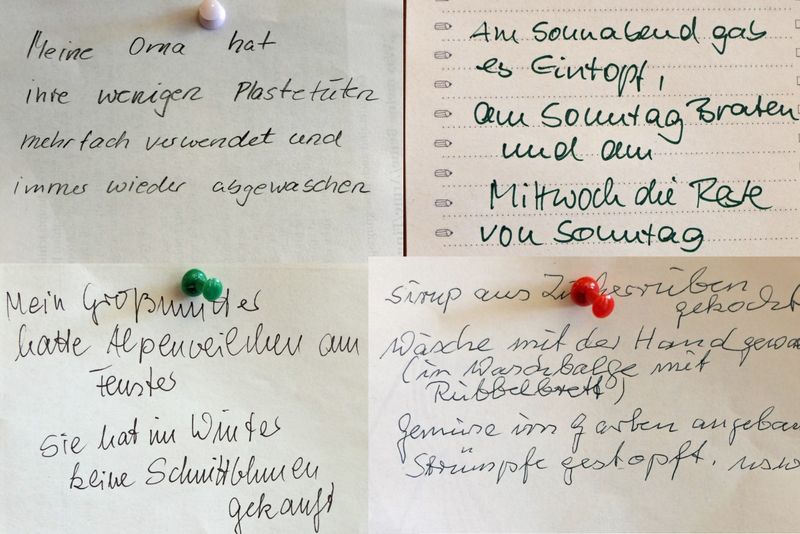 Meine Oma hat
ihre wenigen Plastetüten
mehrfach verwendet und
immer wieder abgewaschen
Am Sonnabend gab
es Eintopf,
am Sonntag Braten
und am
Mittwoch die Reste
von Sonntag
Mein Großmutter
hatte Alpenveilchen am
Fenster
Sie hat im Winter
keine Schnittblumen
gekauft
Sirup aus Zuckerrüben
gekocht
Wäsche mit der Hand gewa
(in Waschbalge mit
Rübbelbrett)
Gemüse im Garten angebau
Strümpfe gestopft. usw